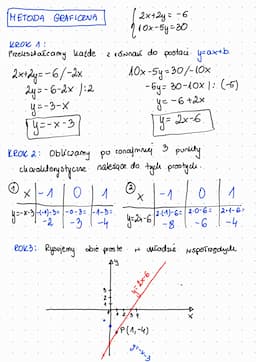 METODA GRAFICZNA
{ 2x+2y=-6
10x-5y=30
KROK 1:
Przekształcamy każde z równań do postaci y=ax+b
2x+2y=-6/-2x
2y=-6-2x /:2
y=-3-x
y=-x-3
10x-5y=30/-10x
-5y=30-10x |:(-5)
y=-6+2x
y=2x-6
KROK 2: Obliczamy po conajmniej 3 punkty
charakterystyczne należące do tych prostych.
① x | -1 | 0 | 1
y=-x-3 | -(-1)-3= -2 | -0-3= -3 | -1-3= -4
② x | -1 | 0 | 1
y=2x-6 | 2·(-1)-6= -8 | 2·0-6= -6 | 2·1-6= -4
KROK3: Rysujemy obie proste w układzie współrzędnych
y
y=2x-6
x
P(1,-4)
y=-x-3